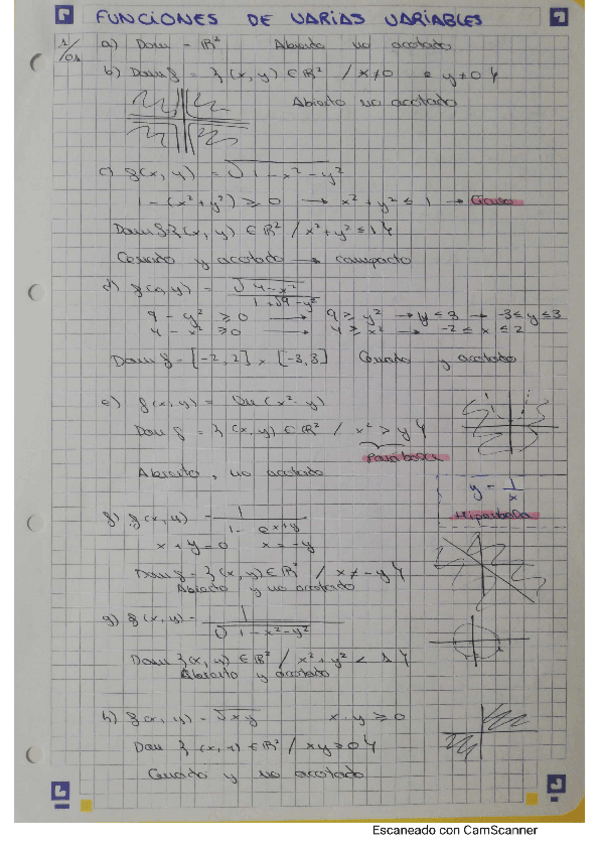 FUNCIONES DE VARIAS VARIABLES
1/01 a) Dom = ℝ² Abierto no acotado
b) Dom f = { (x, y) ∈ ℝ² / x≠0 e y≠0 }
Abierto no acotado
c) f(x, y) = √(1 - x² - y²)
1 - (x² + y²) ≥ 0 → x² + y² ≤ 1 → Círculo
Dom f { (x, y) ∈ ℝ² / x² + y² ≤ 1 }
Cerrado y acotado → compacto
d) f(x, y) = √(4 - x²) / (1 + √(9 - y²))
9 - y² ≥ 0 → 9 ≥ y² → y ≤ 3 → -3 ≤ y ≤ 3
4 - x² ≥ 0 → 4 ≥ x² → -2 ≤ x ≤ 2
Dom f = [-2, 2] x [-3, 3] Cerrado y acotado
e) f(x, y) = Ln (x² - y)
Dom f = { (x, y) ∈ ℝ² / x² > y }
Parábola
Abierto, no acotado
y = 1/x
Hipérbola
f) f(x, y) = 1 / (1 - e^(x+y))
x + y = 0 x = -y
Dom f = { (x, y) ∈ ℝ² / x ≠ -y }
Abierto y no acotado
g) f(x, y) = 1 / √(1 - x² - y²)
Dom { (x, y) ∈ ℝ² / x² + y² < 1 }
Abierto y acotado
h) f(x, y) = √xy x · y ≥ 0
Dom { (x, y) ∈ ℝ² / xy ≥ 0 }
Cerrado y no acotado
Escaneado con CamScanner